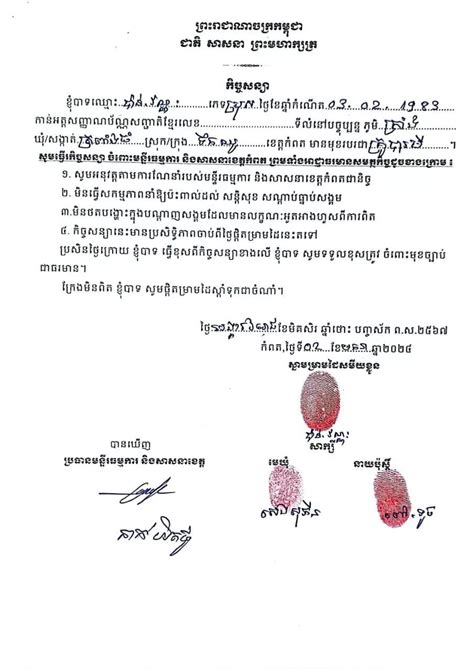 ព្រះរាជាណាចក្រកម្ពុជា
ជាតិ សាសនា ព្រះមហាក្សត្រ
កិច្ចសន្យា
ខ្ញុំបាទឈ្មោះ ភេទ ប្រុស ថ្ងៃខែឆ្នាំកំណើត 03.02.1983
កាន់អត្តសញ្ញាណប័ណ្ណសញ្ជាតិខ្មែរលេខ ទីលំនៅបច្ចុប្បន្ន ភូមិ
ឃុំ/សង្កាត់ ស្រុក/ក្រុង ខេត្តកំពត មានមុខរបរជា
សូមធ្វើកិច្ចសន្យា ចំពោះមន្ទីរធម្មការ និងសាសនាខេត្តកំពត ព្រមទាំងអាជ្ញាធរមានសមត្ថកិច្ចដូចខាងក្រោម ៖
១. សូមអនុវត្តតាមការណែនាំរបស់មន្ទីរធម្មការ និងសាសនាខេត្តកំពតជានិច្ច
២. មិនធ្វើសកម្មភាពនាំឱ្យប៉ះពាល់ដល់ សន្តិសុខ សណ្តាប់ធ្នាប់សង្គម
៣.មិនថតបង្ហោះក្នុងបណ្តាញសង្គមដែលមានលក្ខណៈអួតអាងហួសពីការពិត
៤. កិច្ចសន្យានេះមានប្រសិទ្ធិភាពចាប់ពីថ្ងៃផ្តិតម្រាមដៃនេះតទៅ
ប្រសិនថ្ងៃក្រោយ ខ្ញុំបាទ ធ្វើខុសពីកិច្ចសន្យាខាងលើ ខ្ញុំបាទ សូមទទួលខុសត្រូវ ចំពោះមុខច្បាប់
ជាធរមាន។
ក្រែងមិនពិត ខ្ញុំបាទ សូមផ្តិតម្រាមដៃស្តាំទុកជាចំណាំ។
ថ្ងៃ ខែមិគសិរ ឆ្នាំថោះ បញ្ចស័ក ព.ស.២៥៦៧
កំពត,ថ្ងៃទី ខែ ឆ្នា២០២៤
ស្នាមម្រាមដៃសមីយខ្លួន
សាក្សី
បានឃើញ
ប្រធានមន្ទីរធម្មការ និងសាសនាខេត្ត
មេឃុំ
នាយប៉ុស្តិ៍